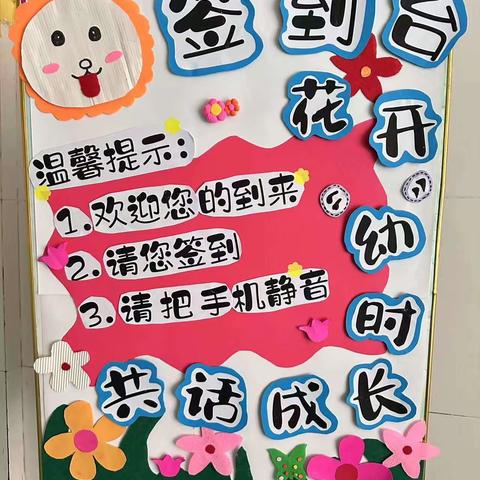 签到台
花开
幼时
温馨提示：
1.欢迎您的到来
2.请您签到
3.请把手机静音
共话成长